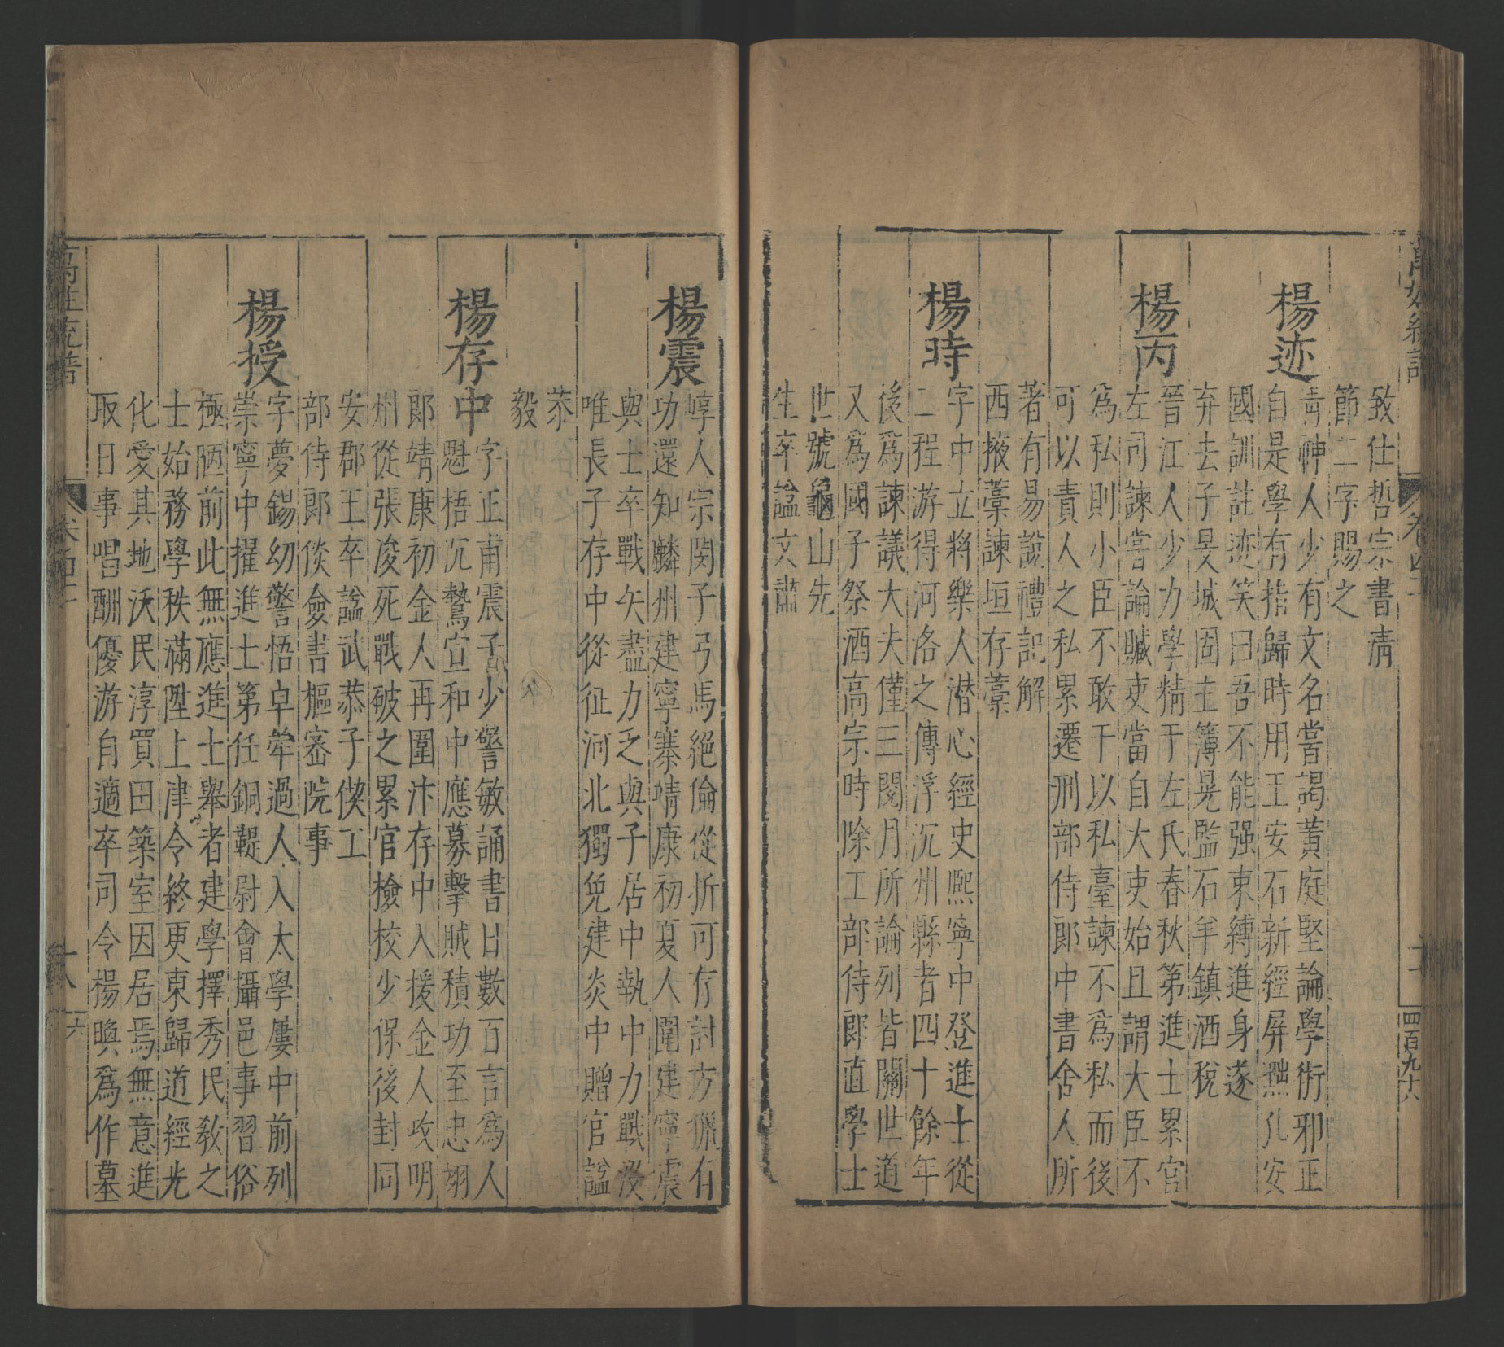 致仕哲宗書清
節二字賜之
楊迹
青神人少有文名嘗謁黄庭堅論學術邪正
自是學有指歸時用王安石新經屏孔安
國訓註迹笑曰吾不能强束縛進身遂
弃去子旻城固主簿晃監石羊鎮酒稅
楊丙
晉江人少力學精于左氏春秋第進士累官
左司諫嘗論贓吏當自大吏始且謂大臣不
爲私則小臣不敢干以私臺諫不爲私而後
可以責人之私累遷刑部侍郎中書舍人所
著有易說禮記解
西掖藁諫垣存藁
楊時
字中立將樂人潜心經史熙寧中登進士從
二程游得河洛之傳浮沉州縣者四十餘年
後爲諫議大夫僅三閱月所論列皆關世道
又爲國子祭酒高宗時除工部侍郎直學士
世號龜山先
生卒謚文肅
楊震
崞人宗閔子弓馬絕倫從折可存討方獵有
功還知麟州建寧寨靖康初夏人圍建寧震
與士卒戰矢盡力乏與子居中執中力戰沒
唯長子存中從征河北獨免建炎中贈官謚
恭
毅
楊存中
字正甫震子少警敏誦書日數百言爲人
魁梧沉鷙宣和中應募擊賊積功至忠翊
郎靖康初金人再圍汴存中入援金人攻明
州從張浚死戰破之累官檢校少保後封同
安郡王卒謚武恭子偰工
部侍郎倓僉書樞密院事
楊授
字夢錫幼警悟卓犖過人入太學屢中前列
崇寧中擢進士第任銅鞮尉會攝邑事習俗
極陋前此無應進士舉者建學擇秀民敎之
士始務學秩滿陞上津令終更東歸道經光
化愛其地沃民淳買田築室因居焉無意進
取日事唱酬優游自適卒司令楊煥爲作墓
萬姓統譜
卷四
十八